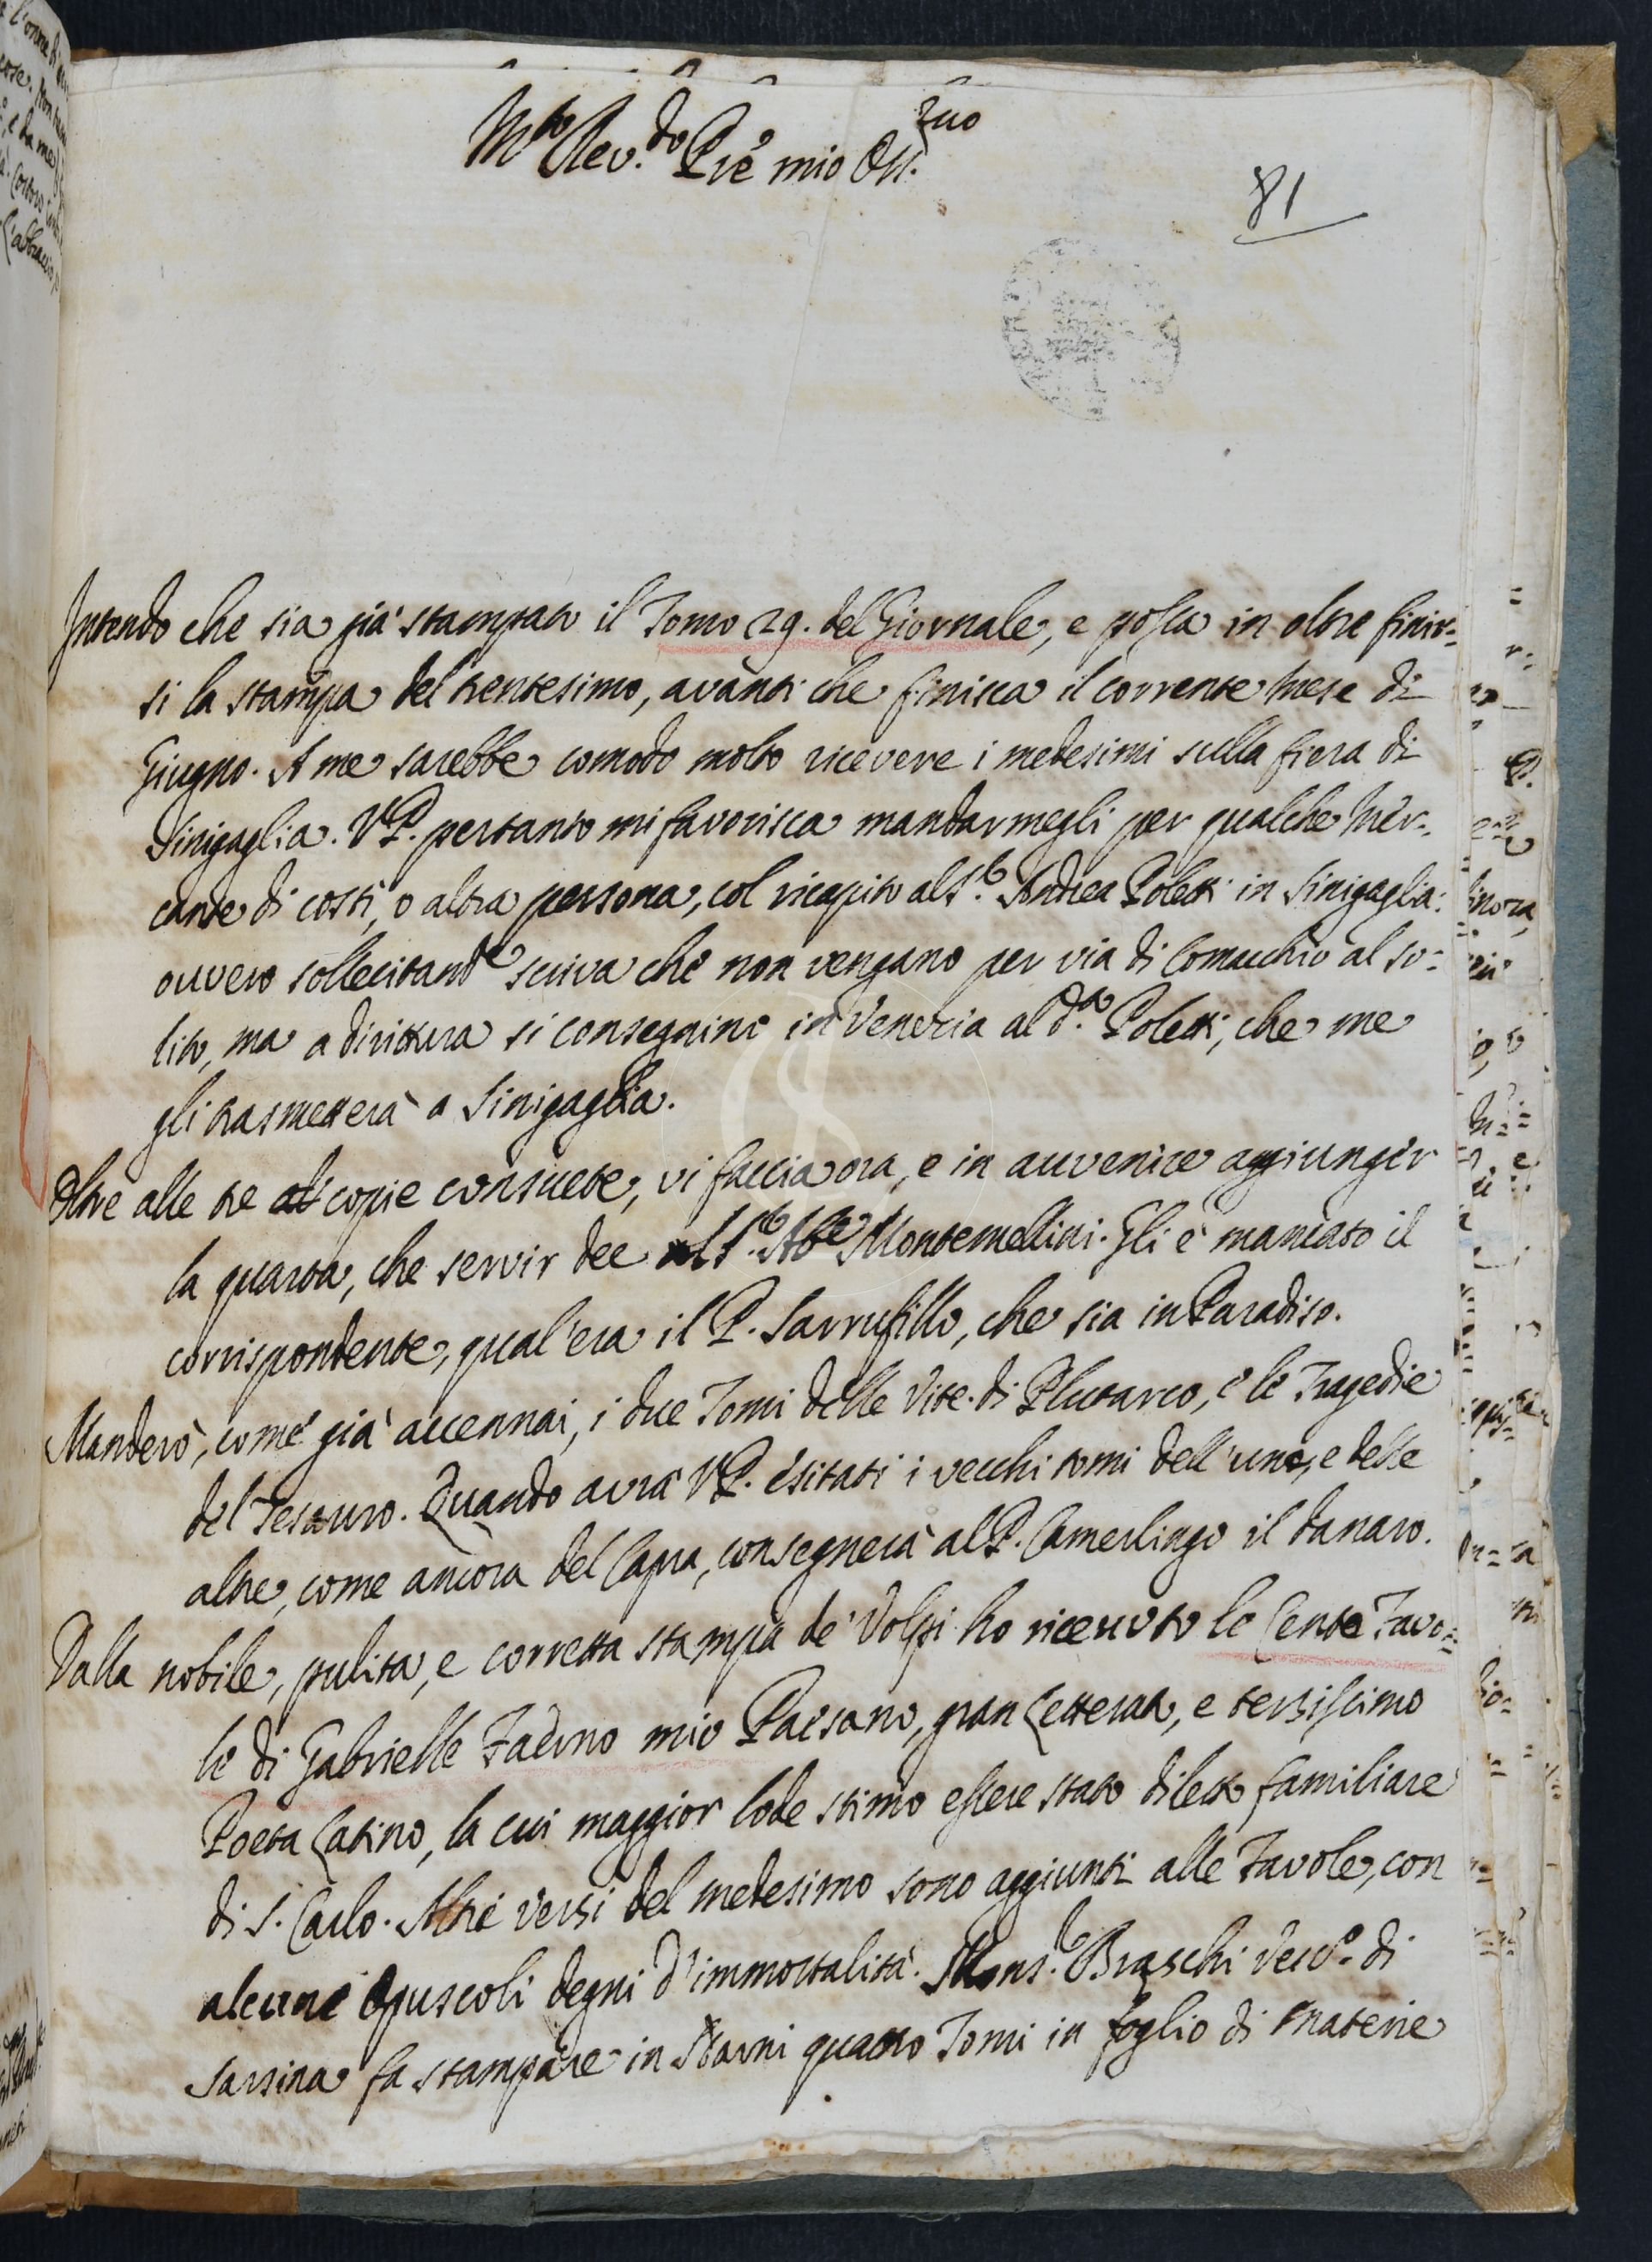 M.to Rev.do Pre mio Oss.mo
81
Intendo che sia già stampato il Tomo 29. del Giornale, e possa in oltre finir=
si la stampa del trentesimo, avanti che finisca il corrente mese di
Giugno. A me sarebbe comodo molto ricevere i medesimi sulla fiera di
Sinigaglia. V.P. pertanto mi favorisca mandarmegli per qualche Mer=
cante di costì, o altra persona, col ricapito al S.r Andrea Poletti in Sinigaglia:
ouvero sollecitand.e scriva che non vengano per via di Comacchio al so=
lito, ma a dirittura si consegnino in Venezia al d.o Poletti, che me
gli trasmetterà a Sinigaglia.
Oltre alle tre copie consuete, vi faccia ora, e in auvenire aggiunger
la quarta, che servir dee al S.r Ab.e Montemellini. Gli è mancato il
corrispondente, qual'era il P. Sarrufillo, che sia in Paradiso.
Manderò, come già accennai, i due Tomi delle Vite di Plutarco, e le Tragedie
del Tesauro. Quando avrà V.P. esitati i vecchi tomi dell'uno, e delle
altre, come ancora del Capra, consegnerà al P. Camerlingo il danaro.
Dalla nobile, pulita, e corretta stampa de' Volpi ho ricevuto le Cento Favo=
le di Gabrielle Faerno mio Paesano, gran Letterato, e tersissimo
Poeta Latino, la cui maggior lode stimo essere stato diletto familiare
di S. Carlo. Altri versi del medesimo sono aggiunti alle Favole, con
alcuni Opuscoli degni d'immortalità. Mons.r Braschi Vesc.o di
Sarsina fa stampare in Narni quattro Tomi in foglio di materie